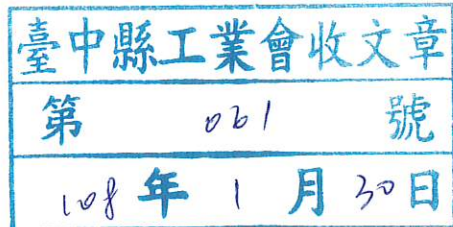 臺中縣工業會收文章
第 061 號
108 年 1 月 30 日